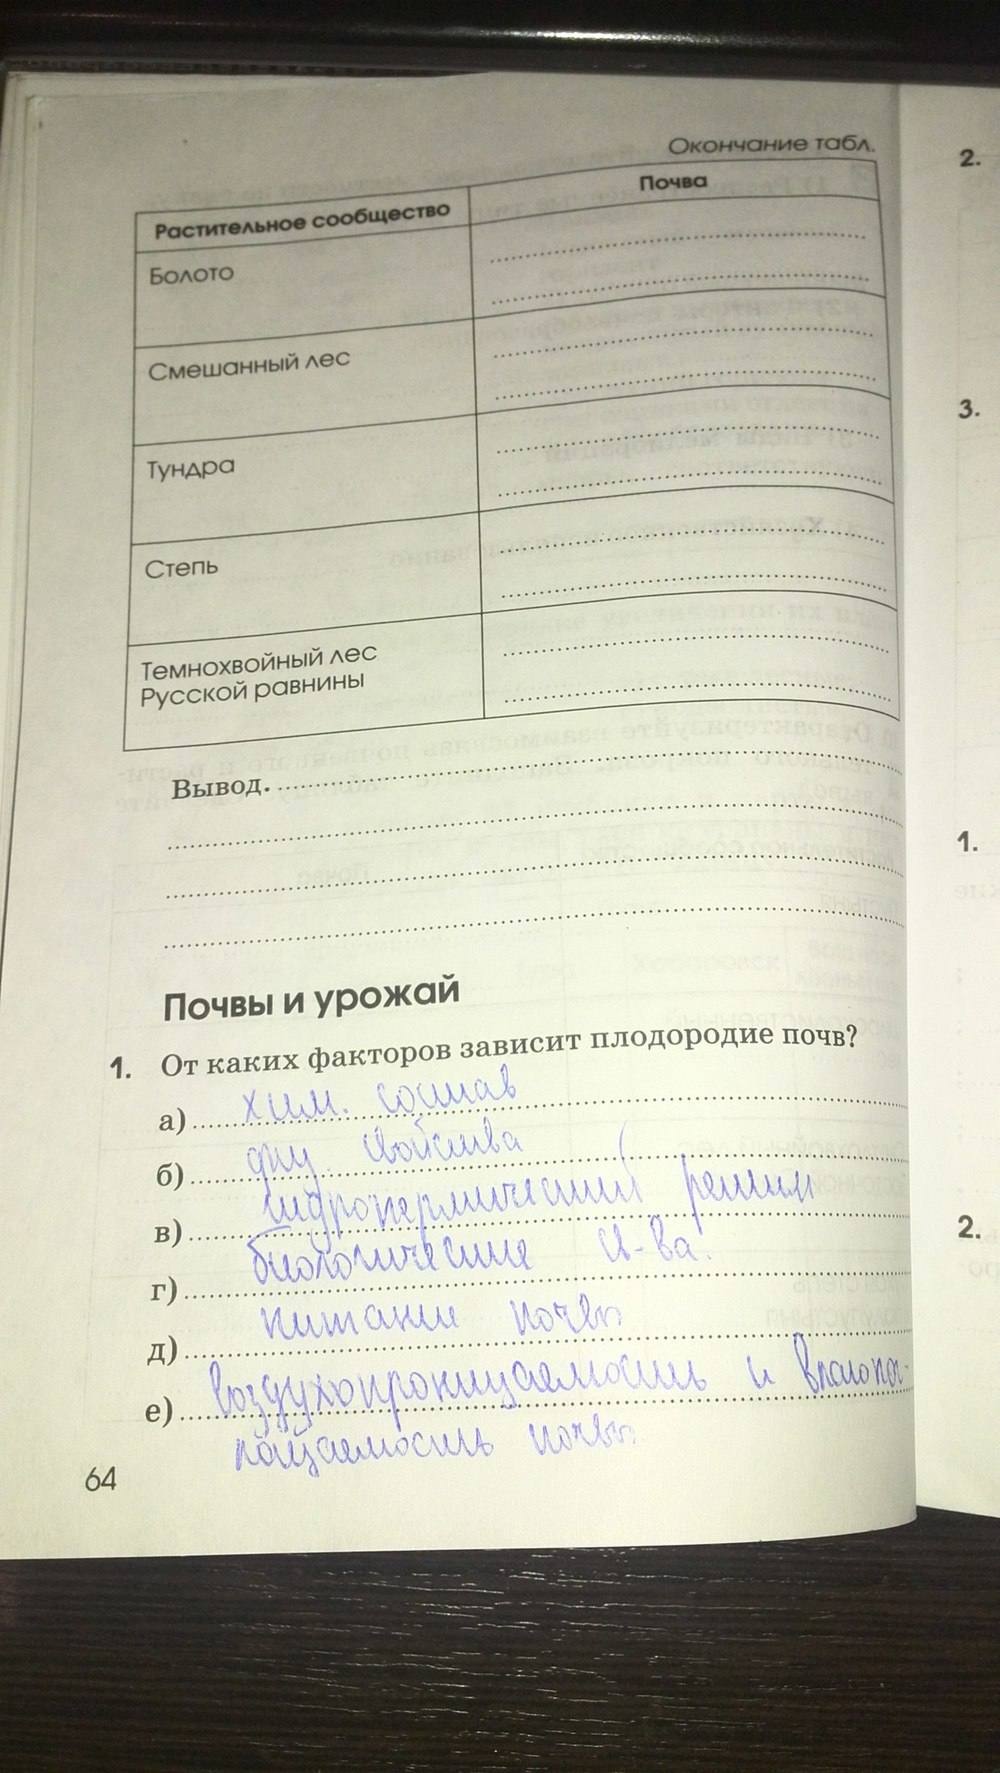 Окончание табл.
Растительное сообщество
Почва
Болото
Смешанный лес
Тундра
Степь
Темнохвойный лес
Русской равнины
Вывод.
Почвы и урожай
1. От каких факторов зависит плодородие почв?
а) хим. состав
б) физ. свойства
в) гидротермический режим
г) биологические св-ва.
д) питание почвы
е) воздухопроницаемость и влагопог-
лощаемость почвы
64
2.
3.
1.
2.